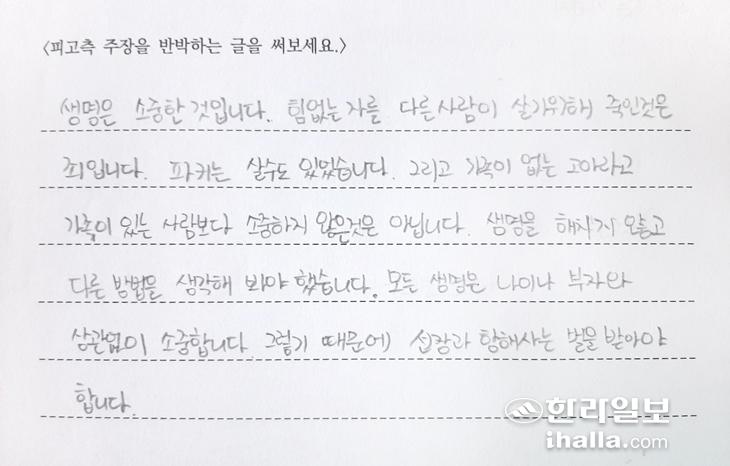 <피고측 주장을 반박하는 글을 써보세요.>
생명은 소중한 것입니다. 힘없는 자를 다른 사람이 살기위해 죽인것은
죄입니다. 파커는 살수도 있었습니다. 그리고 가족이 없는 고아라고
가족이 있는 사람보다 소중하지 않은것은 아닙니다. 생명을 해치지 않고
다른 방법을 생각해 봐야 했습니다. 모든 생명은 나이나 부자와
상관없이 소중합니다. 그렇기 때문에 선장과 항해사는 벌을 받아야
합니다.
한라일보
ihalla.com